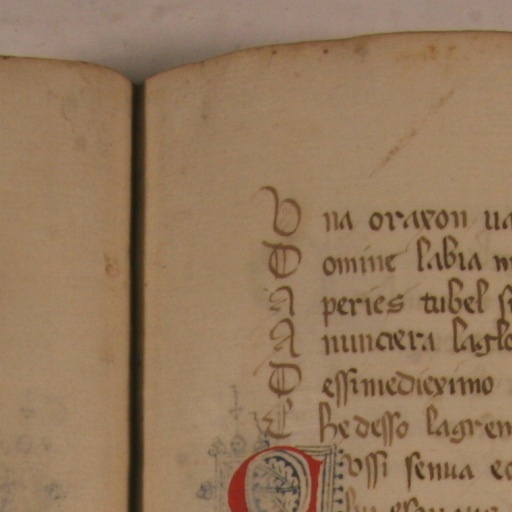 Una oraxon ua
Domine labia m
Aperies tu bel s
Anunciera la glo
Dessi me diex imo
Che desso la gren
Cossi senua eo